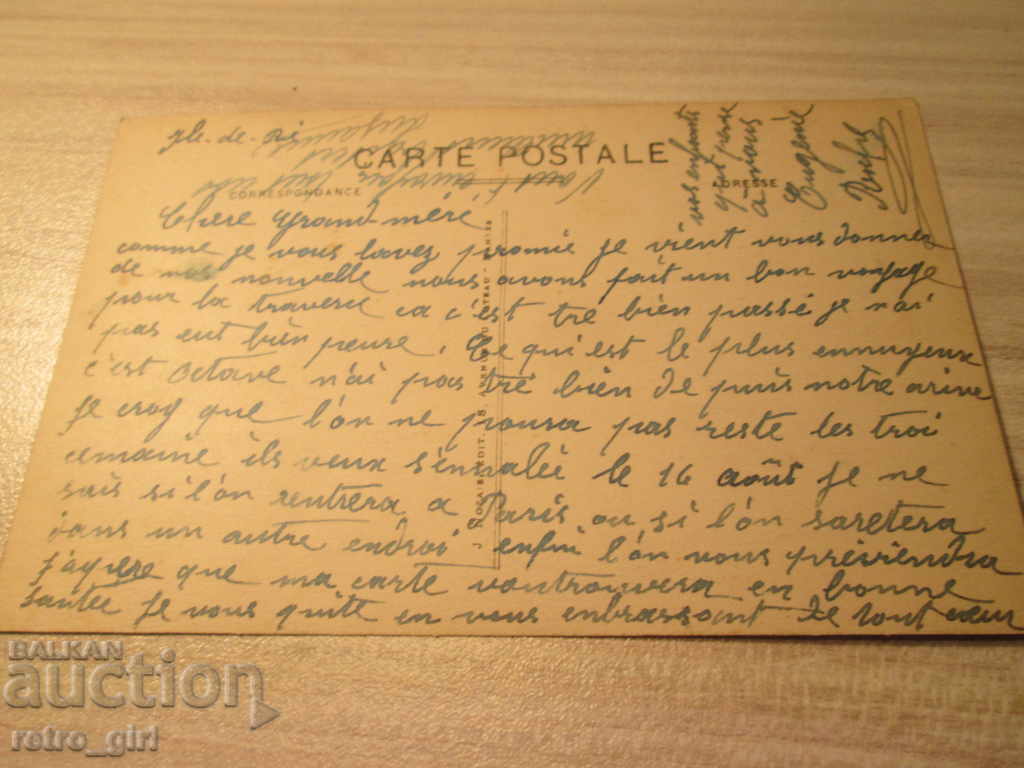 Ile-de-Ré
CARTE POSTALE
CORRESPONDANCE
ADRESSE
Chere grand méré
comme je vous lavez promie je vient vous donner
de nos nouvelle nous avons fait un bon voyage
pour la traverse ca c'est tré bien passé je n'ai
pas eut bien peure. Ce qui est le plus ennuyeux
c'est Octave n'ai pas tré bien de puis notre arive
je croy que l'on ne poura pas reste les trois
cemaine ils veux s'enralée le 16 août je ne
sais si l'on rentrera a Paris ou si l'on saretera
dans un autre endroi enfin l'on vous previendra
J'espere que ma carte vontrouvera en bonne
santée Je vous quitte en vous enbrassant de tout cœur
vos enfants
qui pense
a
Eugénie
BALKAN
auction
retro_girl